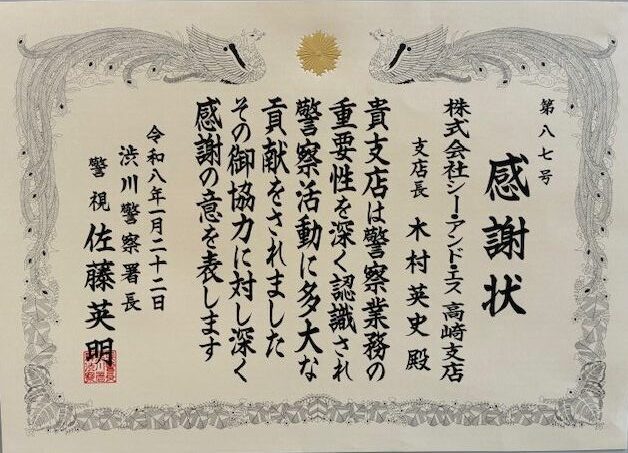 第八七号
感謝状
株式会社シー・アンド・エス 高崎支店
支店長 木村英史 殿
貴支店は警察業務の
重要性を深く認識され
警察活動に多大な
貢献をされました
その御協力に対し深く
感謝の意を表します
令和八年一月二十二日
渋川警察署長
警視 佐藤英明